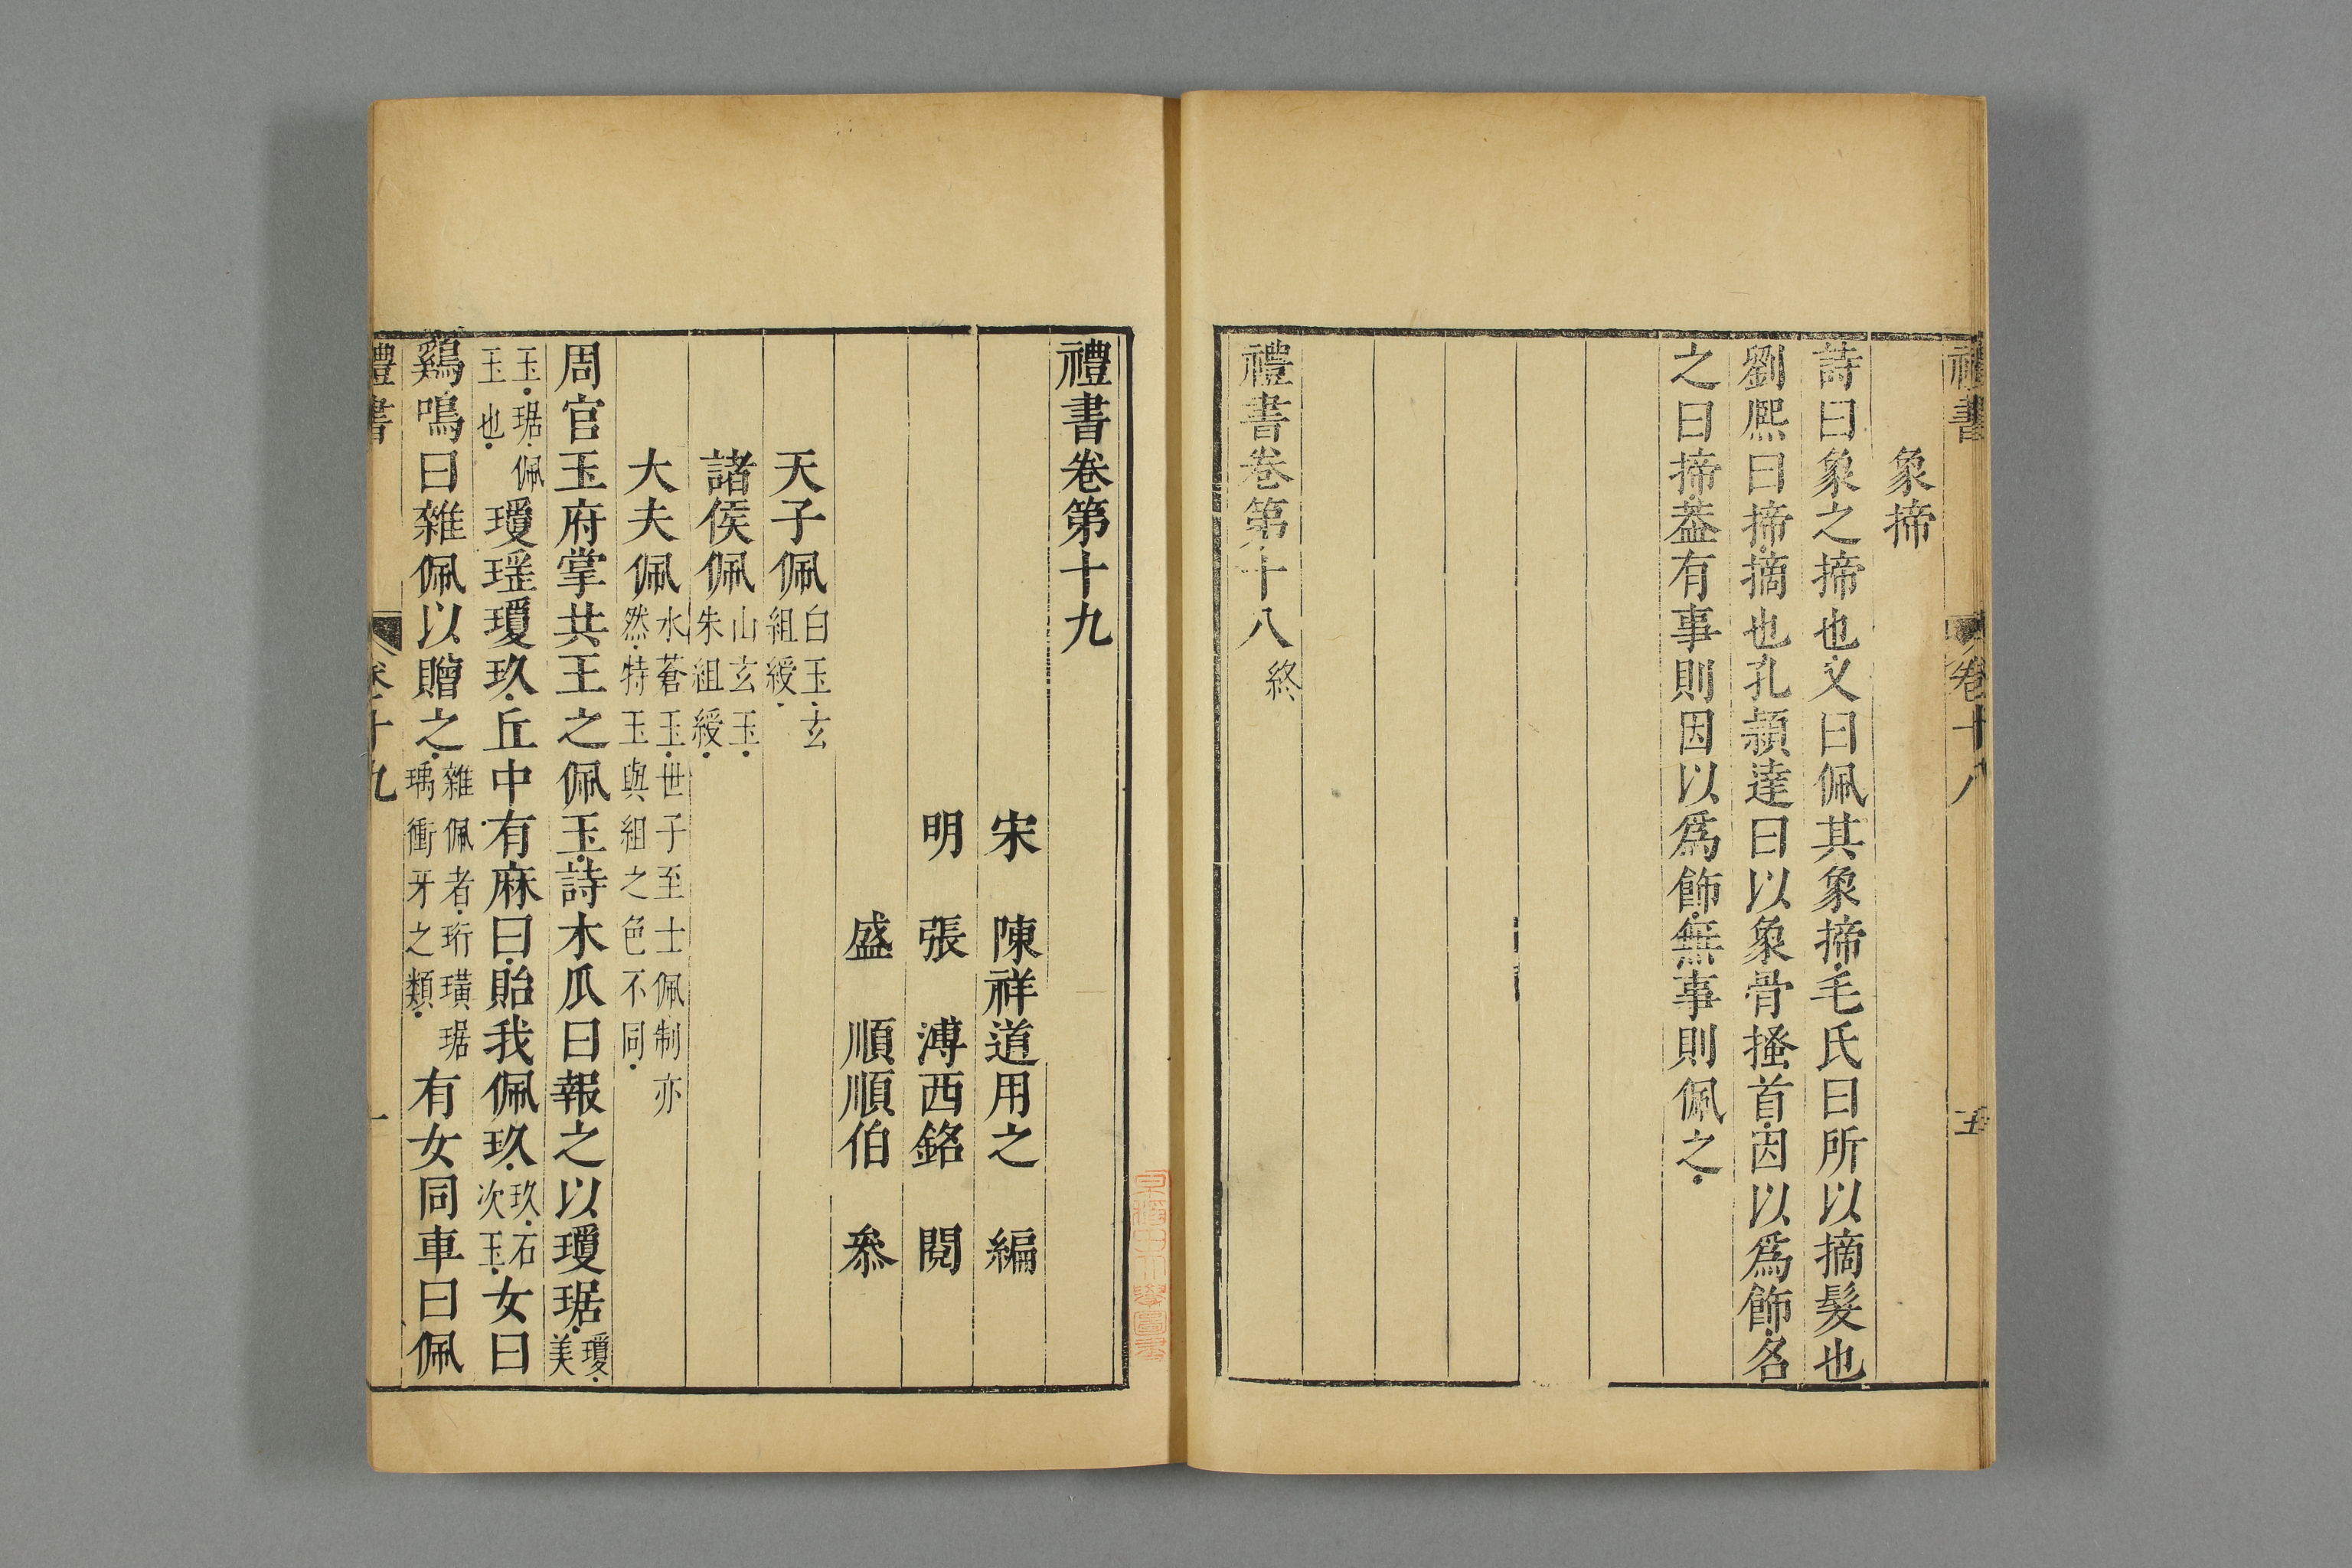 禮書
卷十八
五
象揥
詩曰象之揥也又曰佩其象揥毛氏曰所以摘髮也
劉熈曰揥摘也孔穎達曰以象骨搔首因以爲飾名
之曰揥葢有事則因以爲飾無事則佩之
禮書卷第十八終
禮書卷第十九
宋 陳祥道用之 編
明 張 溥西銘 閱
盛 順順伯 叅
天子佩白玉玄組綬
諸侯佩山玄玉朱組綬
大夫佩水蒼玉世子至士佩制亦然特玉與組之色不同
周官玉府掌共王之佩玉詩木瓜曰報之以瓊琚瓊美
玉琚佩玉也瓊瑶瓊玖丘中有麻曰貽我佩玖玖石次玉女曰
鷄鳴曰雜佩以贈之雜佩者珩璜琚瑀衝牙之類有女同車曰佩
禮書
卷十九
一
早稻田大學圖書